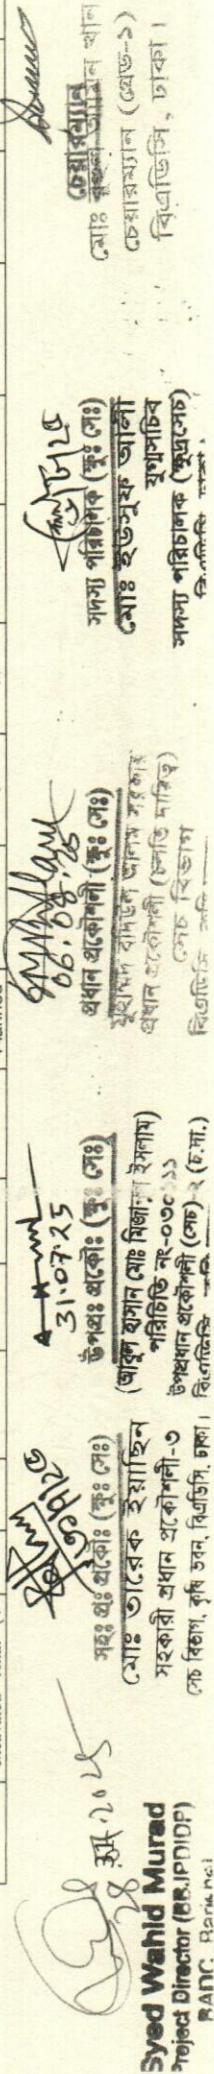 31.07.25
06.08.25
Syed Wahid Murad
Project Director (BBJPDIDP)
BADC, Barishal
সহঃ প্রঃ প্রকৌঃ (ক্ষুঃ সেঃ)
মোঃ তারেক ইয়াছিন
সহকারী প্রধান প্রকৌশলী-৩
সেচ বিভাগ, কৃষি ভবন, বিএডিসি, ঢাকা।
উপপ্রঃ প্রকৌঃ (ক্ষুঃ সেঃ)
(আবুল হাসান মোঃ মিজানুল ইসলাম)
পরিচিতি নং-০৩০১১
উপপ্রধান প্রকৌশলী (সেচ) ২ (চ.দা.)
প্রধান প্রকৌশলী (ক্ষুঃ সেঃ)
মুহাম্মদ বদিউল আলম সরকার
প্রধান প্রকৌশলী (চলতি দায়িত্ব)
সেচ বিভাগ
সদস্য পরিচালক (ক্ষুঃ সেঃ)
মোঃ ইউসুফ আলী
যুগ্মসচিব
সদস্য পরিচালক (ক্ষুদ্রসেচ)
চেয়ারম্যান
মোঃ রুহুল আমিন খান
চেয়ারম্যান (গ্রেড-১)
বিএডিসি, ঢাকা।